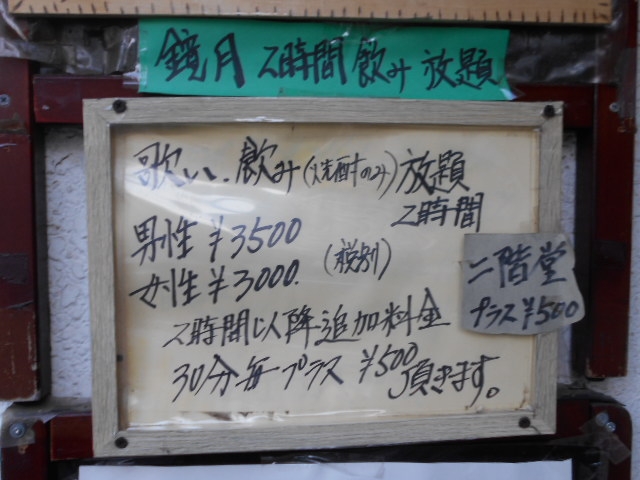 鏡月 2時間 飲み 放題
歌い、飲み(焼酎のみ)放題
2時間
男性 ¥3500
女性 ¥3000.
(税別)
2時間以降追加料金
30分毎プラス ¥500
頂きます。
二階堂
プラス¥500